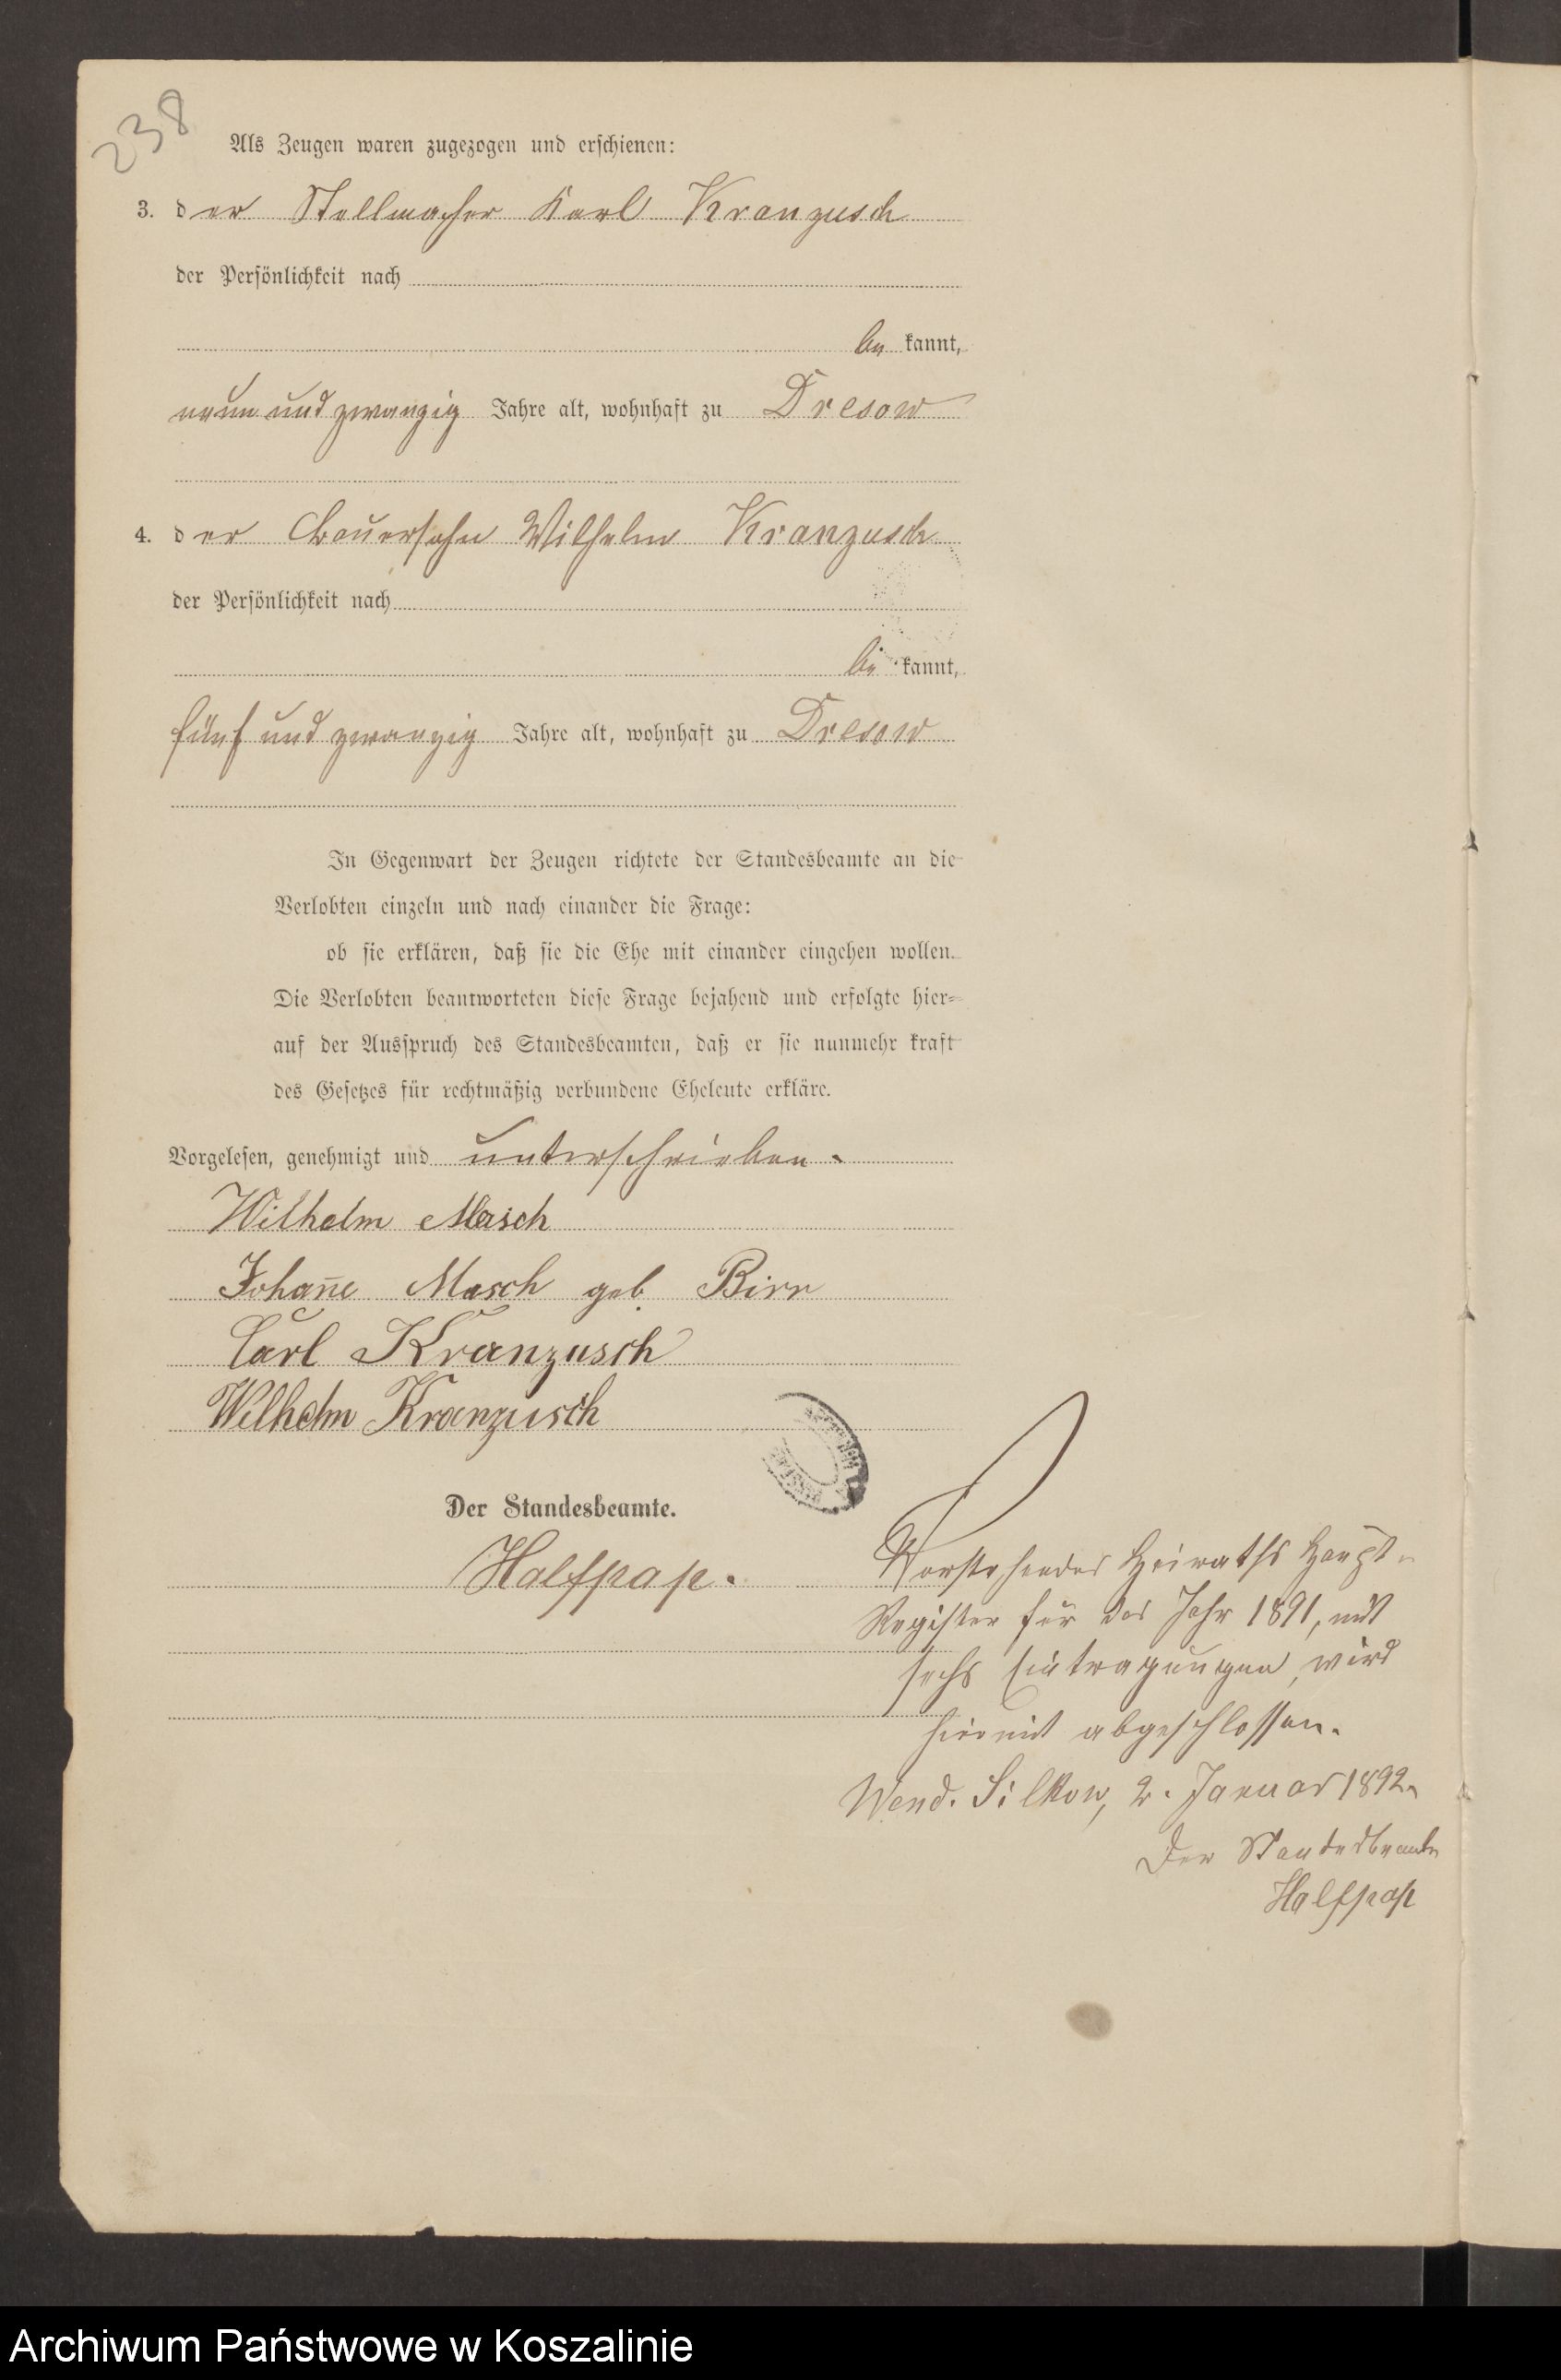 238
Als Zeugen waren zugezogen und erschienen:
3. der Stellmacher Karl Kranzusch
der Persönlichkeit nach
be kannt,
neun und zwanzig Jahre alt, wohnhaft zu Dresow
4. der Bauersohn Wilhelm Kranzusch
der Persönlichkeit nach
be kannt,
fünf und zwanzig Jahre alt, wohnhaft zu Dresow
In Gegenwart der Zeugen richtete der Standesbeamte an die
Verlobten einzeln und nach einander die Frage:
ob sie erklären, daß sie die Ehe mit einander eingehen wollen.
Die Verlobten beantworteten diese Frage bejahend und erfolgte hier-
auf der Ausspruch des Standesbeamten, daß er sie nunmehr kraft
des Gesetzes für rechtmäßig verbundene Eheleute erkläre.
Vorgelesen, genehmigt und unterschrieben.
Wilhelm Masch
Johan̄e Masch geb. Birr
Carl Kranzusch
Wilhelm Kranzusch
Der Standesbeamte.
Halfpap.
Vorstehendes Heiraths Haupt-
Register für das Jahr 1891, mit
sechs Eintragungen, wird
hiermit abgeschlossen.
Wend. Silkow, 2. Januar 1892.
Der Standesbeamte
Halfpap
Archiwum Państwowe w Koszalinie